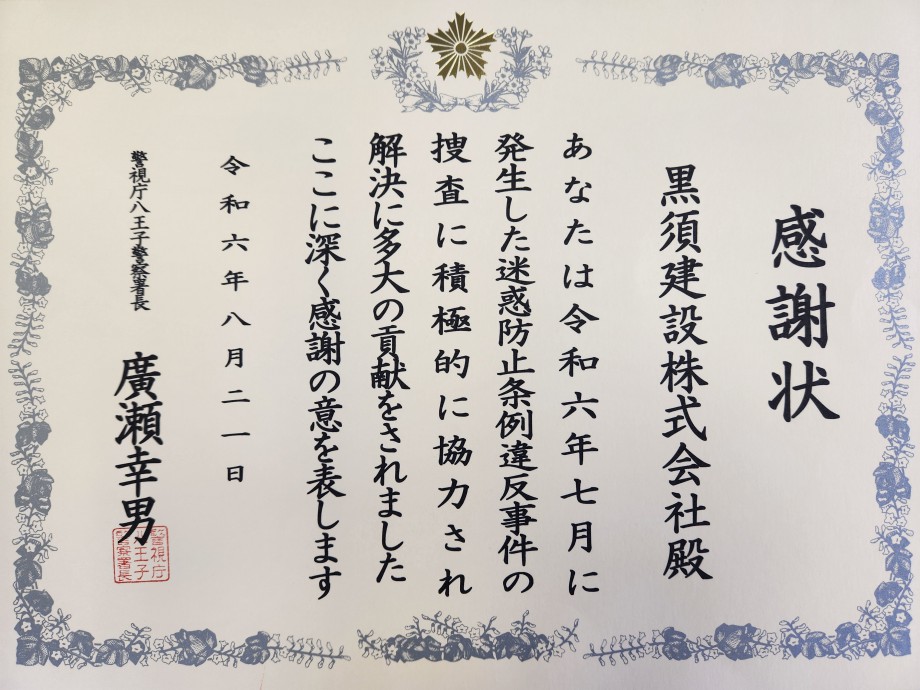 感謝状
黒須建設株式会社殿
あなたは令和六年七月に
発生した迷惑防止条例違反事件の
捜査に積極的に協力され
解決に多大の貢献をされました
ここに深く感謝の意を表します
令和六年八月二一日
警視庁八王子警察署長
廣瀬幸男
警視庁
八王子
警察署長